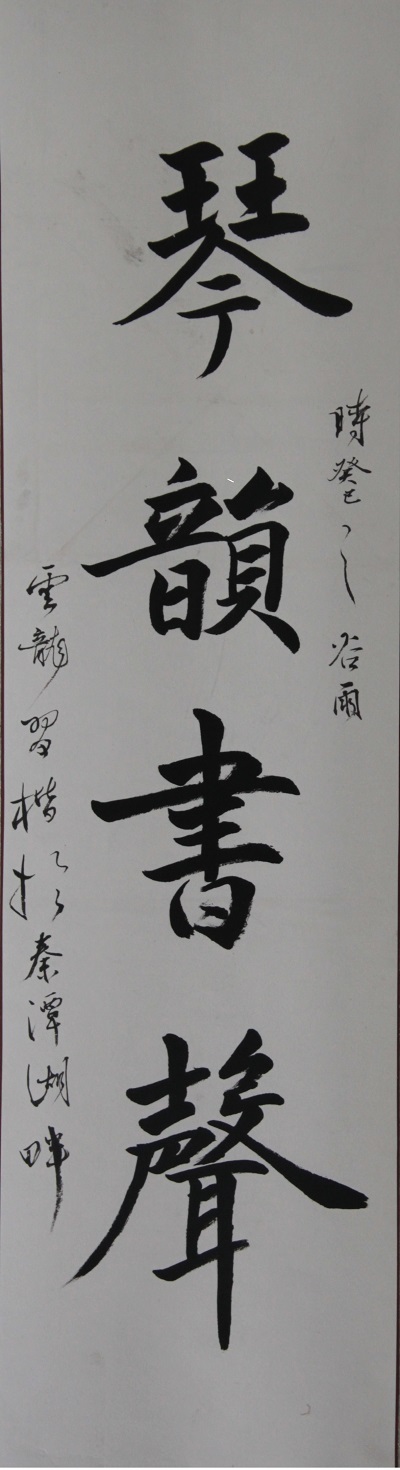 時癸巳之谷雨
琴韻書聲
雲龍習楷於秦潭湖畔